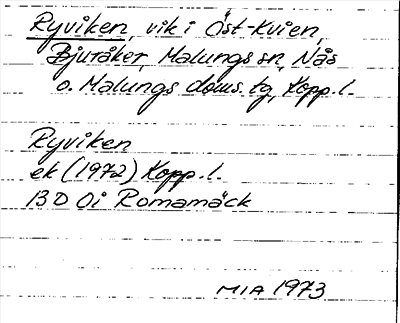 Ryviken, vik i Öst-Kvien,
Bjuråker, Malungs sn, Nås
o. Malungs doms. tg, Kopp. l.
Ryviken
ek (1972) Kopp. l.
13 D 0i Romamäck
MIA 1973